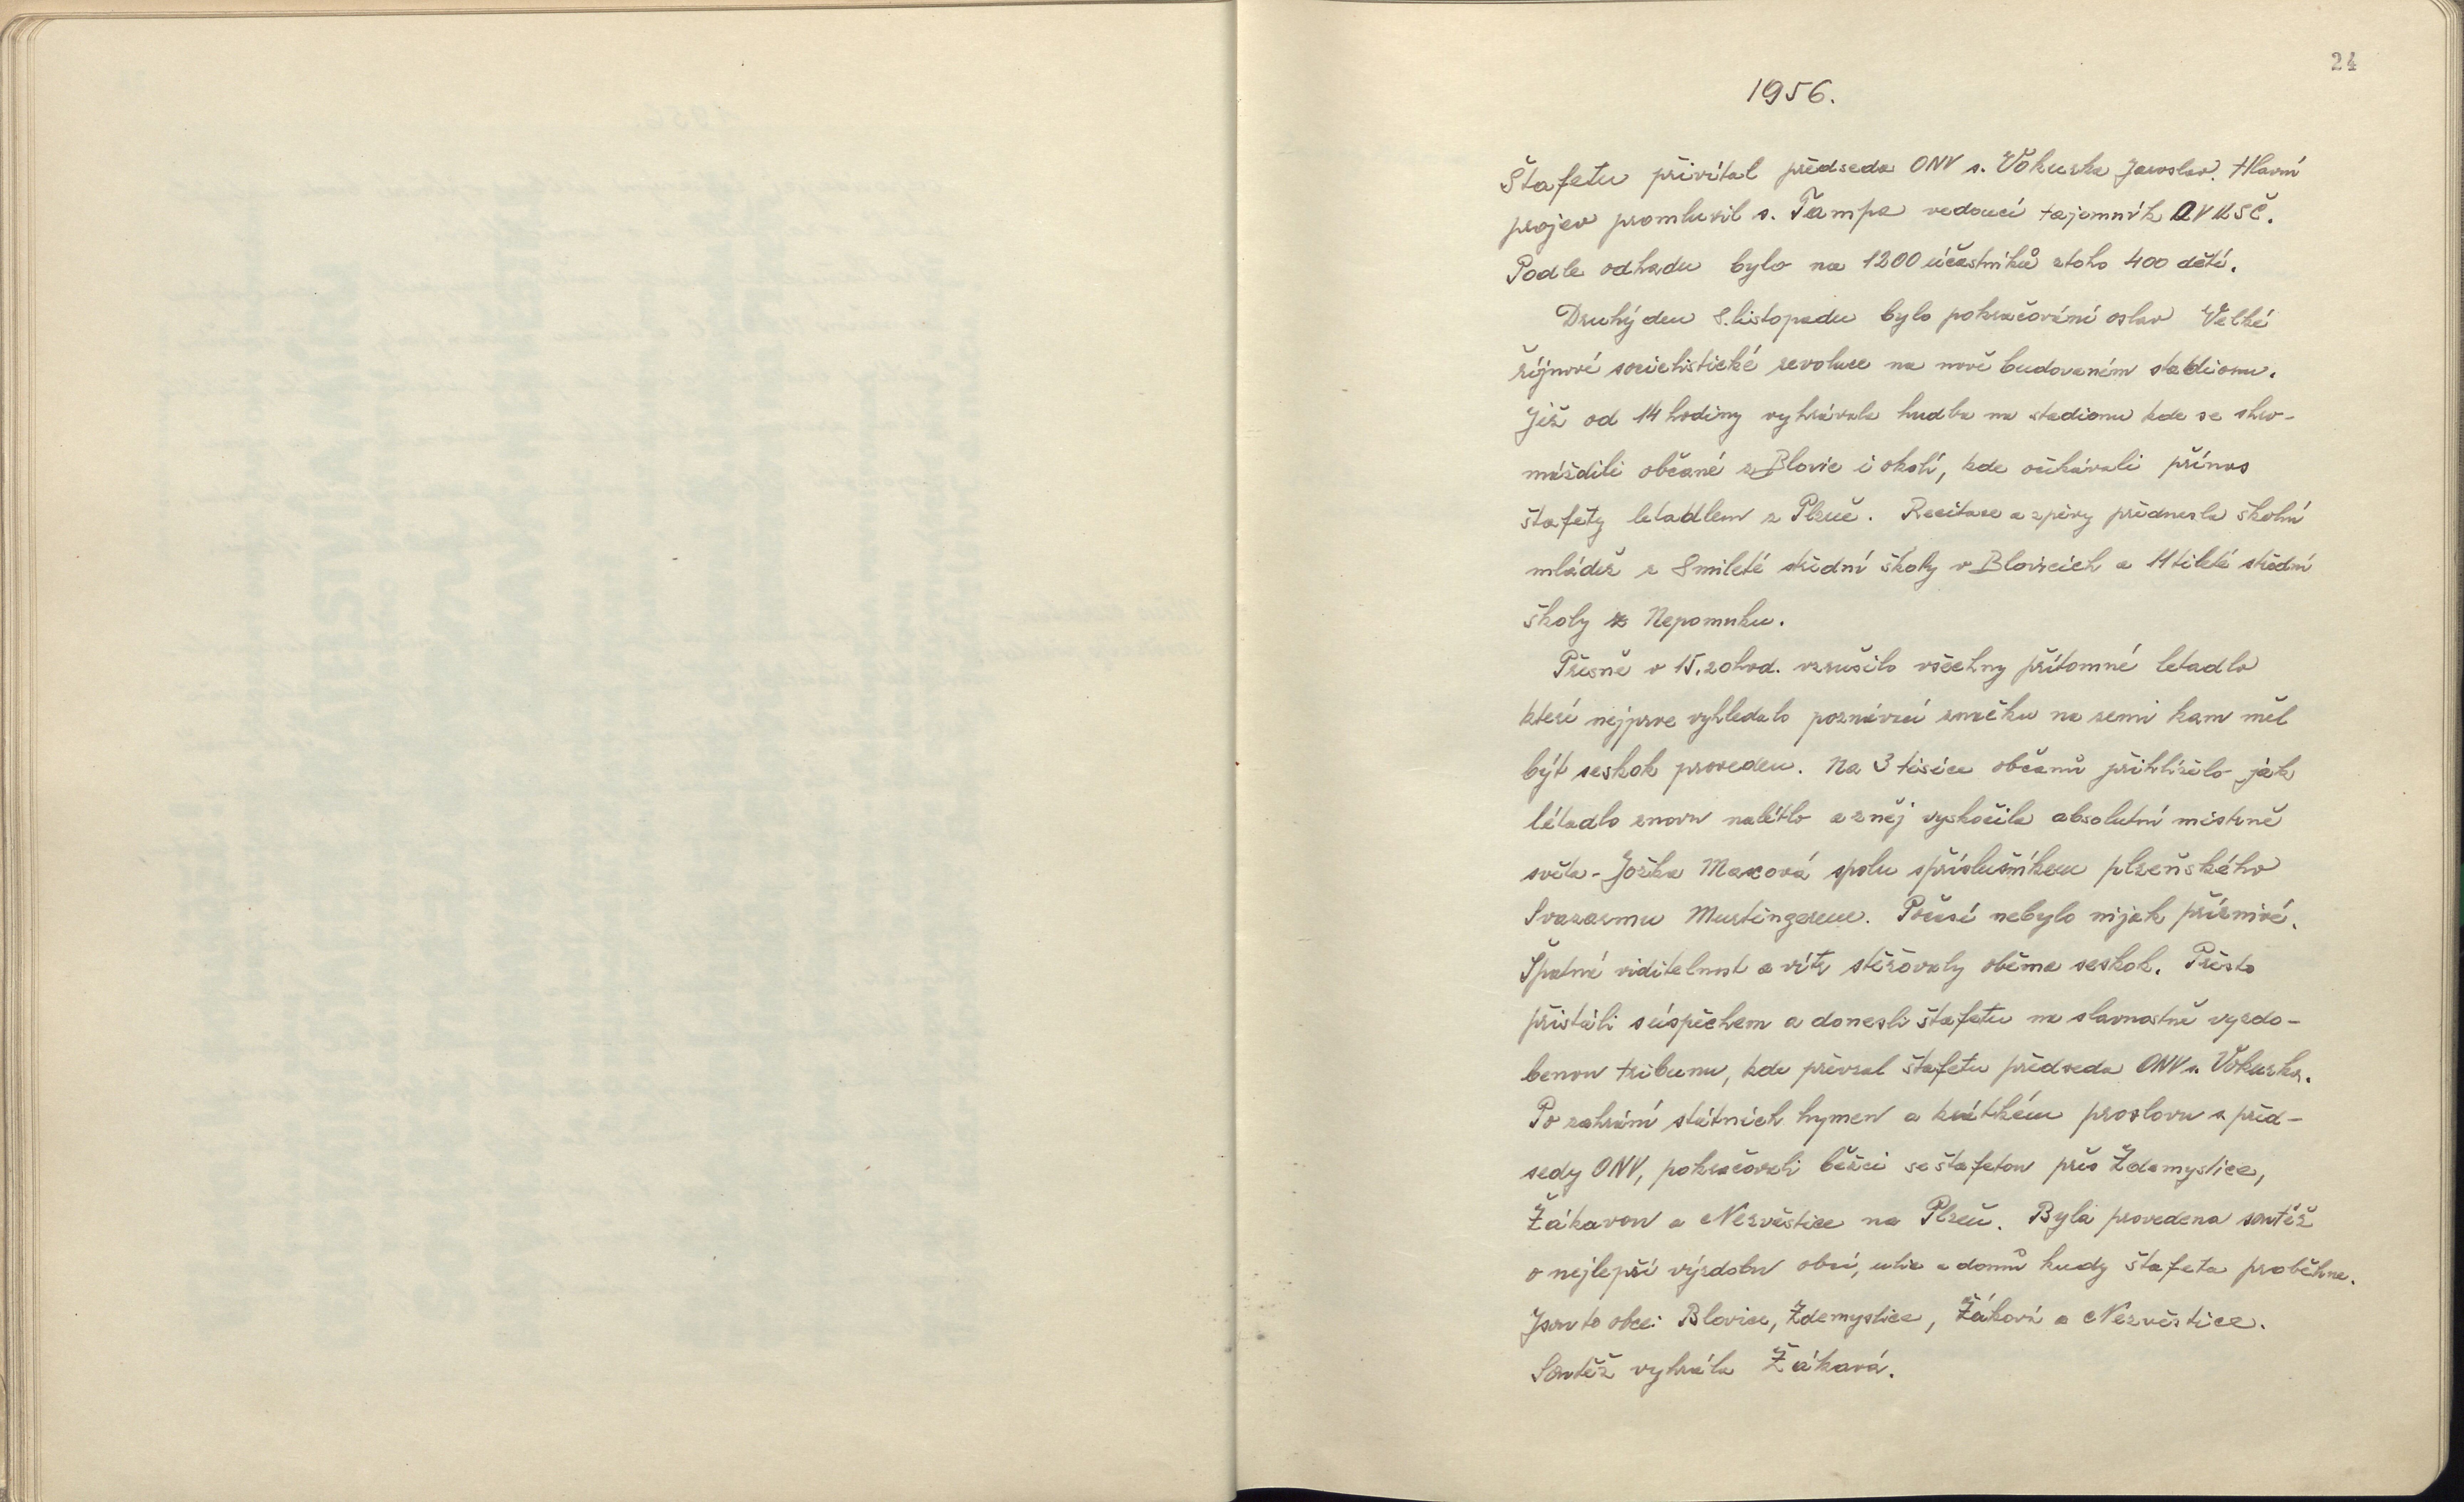 24
1956.
Štafetu přivítal předseda ONV s. Vokurka Jaroslav. Hlavní
projev promluvil s. Tampa vedoucí tajomník OV KSČ.
Podle odhadu bylo na 1200 účastníků ztoho 400 dětí.
Druhý den 8. listopadu bylo pokračování oslav Velké
říjnové socielistické revoluce na nově budovaném stadionu.
Již od 14 hodiny vyhrávala hudba na stadionu kde se shro-
máždili občané z Blovic i okolí, kde očekávali přínos
štafety letadlem z Plzně. Recitace a zpěvy přednesla školní
mládež z 8mileté střední školy v Blovicích a 11tileté střední
školy z Nepomuku.
Přesně v 15.20 hod. vzrušilo všechny přítomné letadlo
které nejprve vyhledalo poznávací značku na zemi kam měl
být seskok proveden. Na 3 tisíce občanů přihlíželo jak
létadlo znovu nalétlo a zněj vyskočila absolutní mistrně
světa - Jožka Maxová spolu spříslušníkem plzeňského
Svazarmu Murtingerem. Počasí nebylo nijak příznivé.
Špatná viditelnost a vítr stěžovaly oběma seskok. Přesto
přistáli súspěchem a donesli štafetu na slavnostně vyzdo-
benou tribunu, kde převzal štafetu předseda ONV s. Vokurka.
Po zahrání státních hymen a krátkém proslovu s před-
sedy ONV, pokračovali běžci se štafetou přes Ždemyslice,
Žákavou a Nezvěstice na Plzeň. Byla provedena soutěž
o nejlepší výzdobu obcí, ulic a domů kudy štafeta proběhne.
Jsou to obce: Blovice, Ždemyslice, Žákavá a Nezvěstice.
Soutěž vyhrála Žákavá.